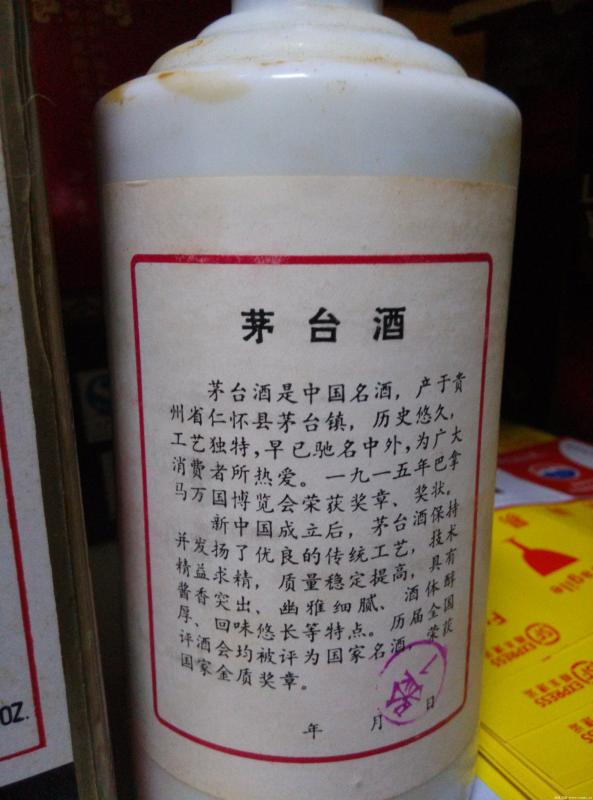 茅台酒
茅台酒是中国名酒，产于贵
州省仁怀县茅台镇，历史悠久，
工艺独特，早已驰名中外，为广大
消费者所热爱。一九一五年巴拿
马万国博览会荣获奖章、奖状。
新中国成立后，茅台酒保持
并发扬了优良的传统工艺，技术
精益求精，质量稳定提高，具有
酱香突出、幽雅细腻、酒体醇
厚、回味悠长等特点。历届全国
评酒会均被评为国家名酒，荣获
国家金质奖章。
年 月 日
OZ.
agile
SF EXPRESS
SF EXPRESS